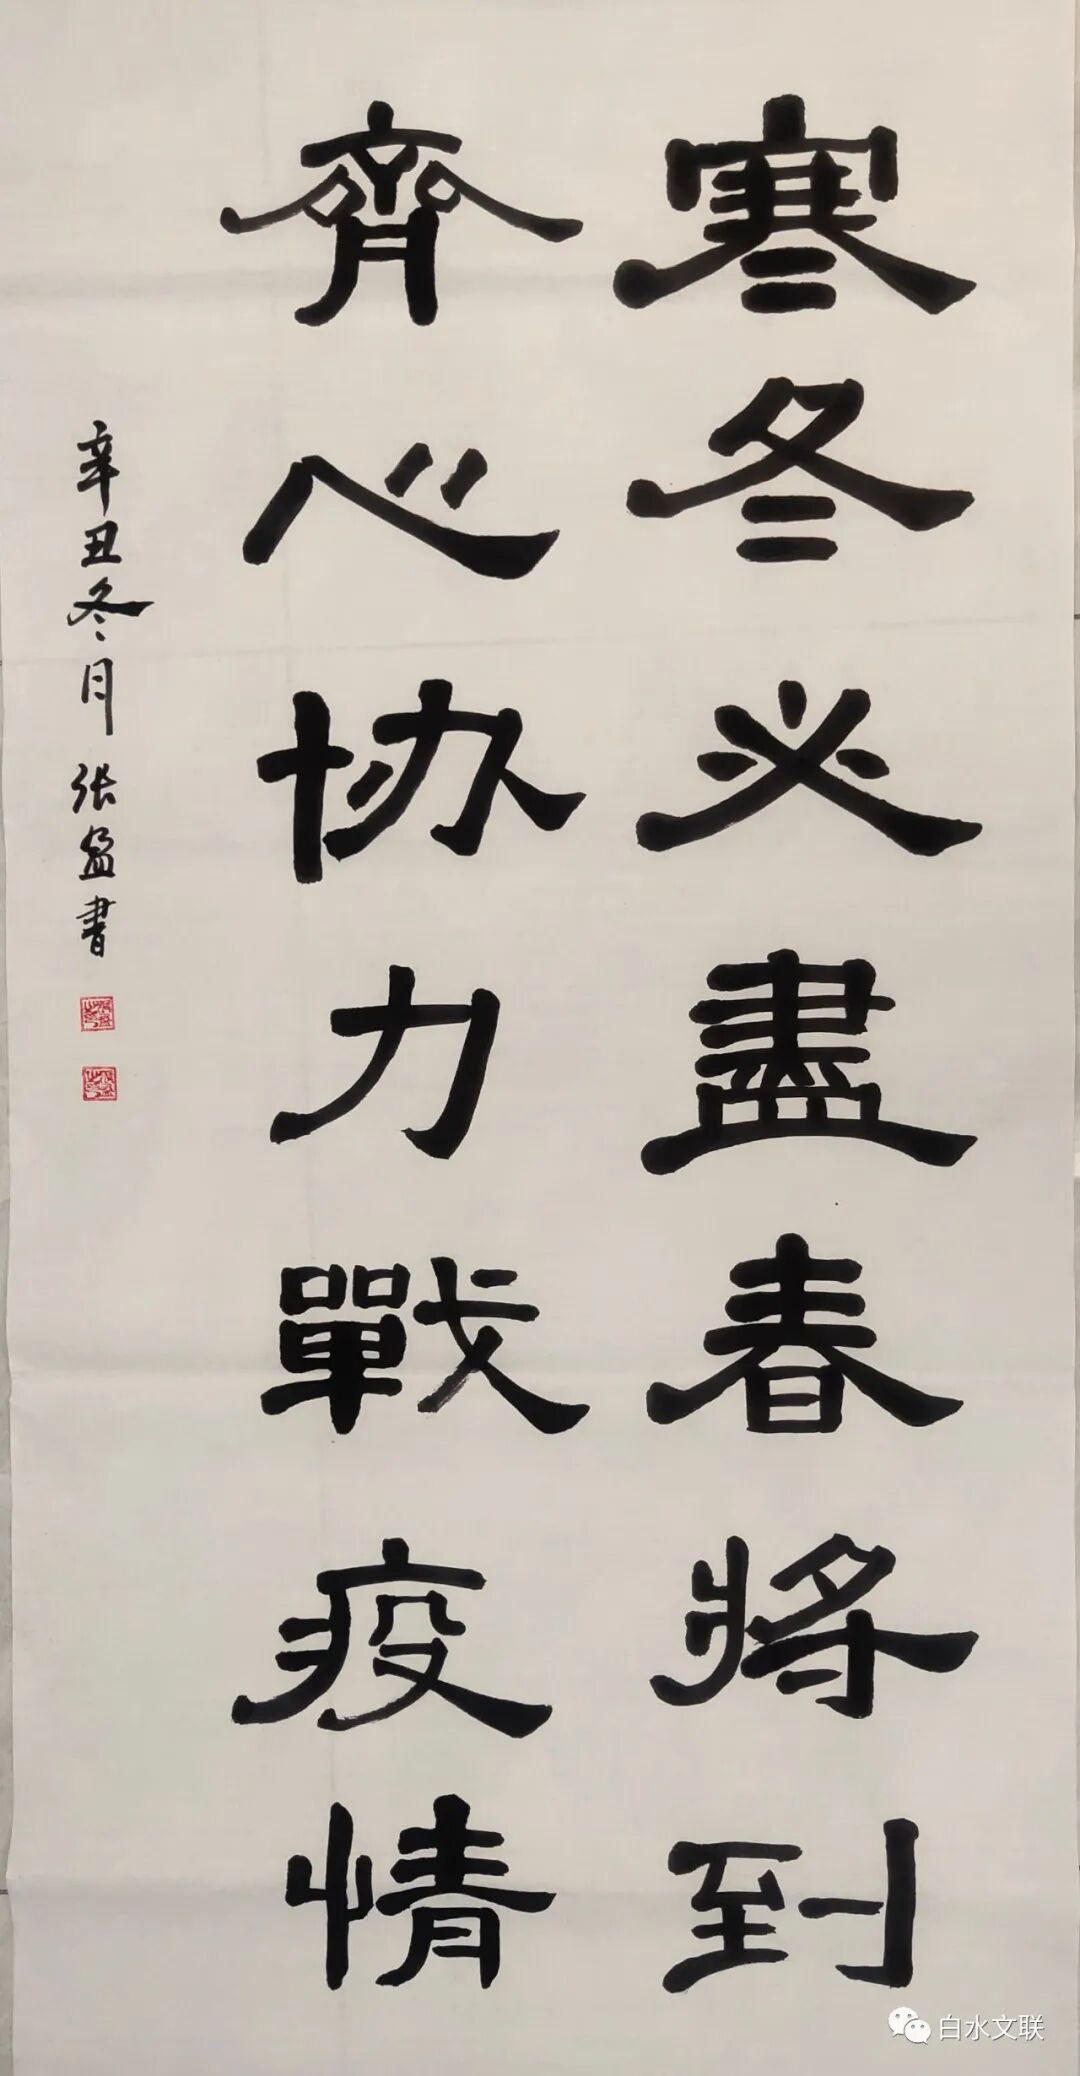 寒冬必盡春將到
齊心协力戰疫情
辛丑冬月 张盈書
白水文联